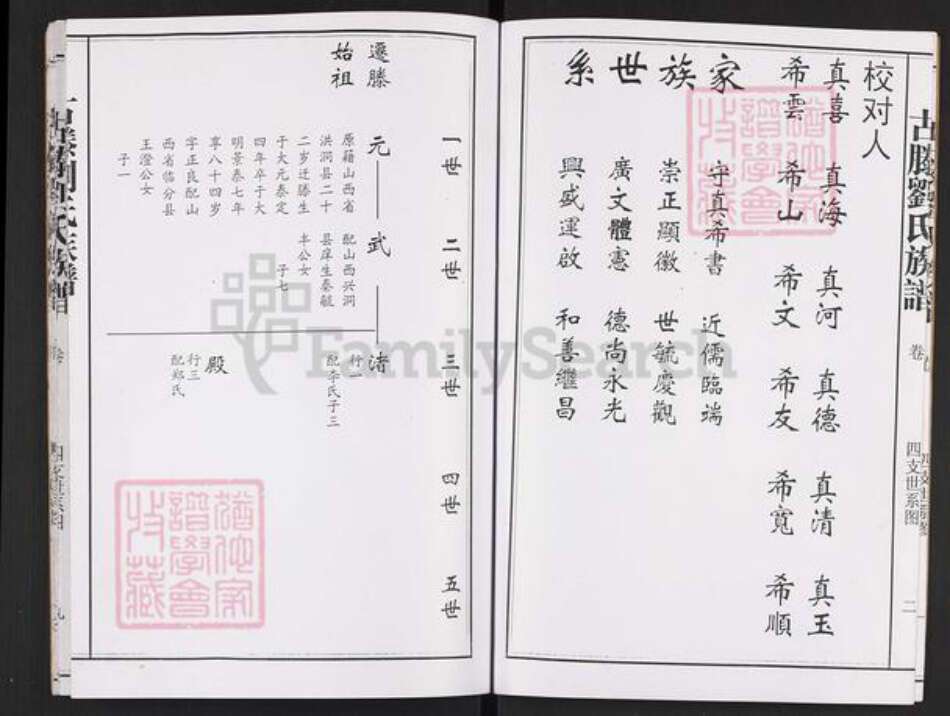 古滕劉氏族譜
卷
四支世系图
二
校对人
真喜 真海 真河 真德 真清 真玉
希雲 希山 希文 希友 希寬 希順
家族世系
守真希書 近儒臨端
崇正顯徽 世毓慶觀
廣文體憲 德尚永光
興盛運啟 和善繼昌
一世 二世 三世 四世 五世
遷滕
始祖
元 武 渚
原藉山西省
洪洞县二十
二岁迁滕生
于大元泰定
四年卒于大
明景泰七年
享八十四岁
字正良配山
西省临分县
王澄公女
子一
配山西兴洞
县庠生秦毓
丰公女
子七
行一
配李氏子三
殿
行三
配郑氏
FamilySearch
猶他家
譜學會
收藏
猶他家
譜學會
收藏